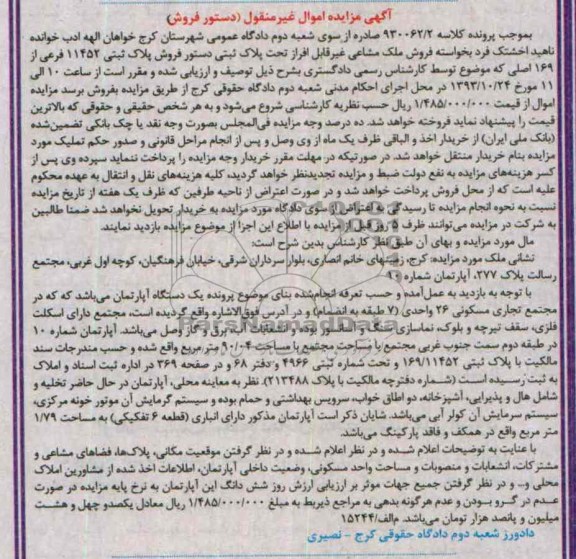 آگهی مزایده اموال غیرمنقول (دستور فروش)
بموجب پرونده کلاسه ۹۳۰۰۶۲/۲ صادره از سوی شعبه دوم دادگاه عمومی شهرستان کرج خواهان الهه ادب خوانده
ناهید اخشتک فرد بخواسته فروش ملک مشاعی غیرقابل افراز تحت پلاک ثبتی دستور فروش پلاک ثبتی ۱۱۴۵۲ فرعی از
۱۶۹ اصلی که موضوع توسط کارشناس رسمی دادگستری بشرح ذیل توصیف و ارزیابی شده و مقرر است از ساعت ۱۰ الی
۱۱ مورخ ۱۳۹۳/۱۰/۲۴ در محل اجرای احکام مدنی شعبه دوم دادگاه حقوقی کرج از طریق مزایده بفروش برسد مزایده
اموال از قیمت ۱/۴۸۵/۰۰۰/۰۰۰ ریال حسب نظریه کارشناسی شروع می‌شود و به هر شخص حقیقی و حقوقی که بالاترین
قیمت را پیشنهاد نماید فروخته خواهد شد. ده درصد وجه مزایده فی‌المجلس بصورت وجه نقد یا چک بانکی تضمین‌شده
(بانک ملی ایران) از خریدار اخذ و الباقی ظرف یک ماه از وی وصل و پس از انجام مراحل قانونی و صدور حکم تملیک مورد
مزایده بنام خریدار منتقل خواهد شد. در صورتیکه در مهلت مقرر خریدار وجه مزایده را پرداخت ننماید سپرده وی پس از
کسر هزینه‌های مزایده به نفع دولت ضبط و مزایده تجدیدنظر خواهد گردید، کلیه هزینه‌های نقل و انتقال به عهده محکوم
علیه است که از محل فروش پرداخت خواهد شد و در صورت اعتراض از ناحیه طرفین که ظرف یک هفته از تاریخ مزایده
نسبت به نحوه انجام مزایده تا رسیدگی به اعتراض از سوی دادگاه مورد مزایده به خریدار تحویل نخواهد شد ضمنا طالبین
به شرکت در مزایده می‌توانند ظرف ۵ روز قبل از مزایده با اطلاع این اجرا از موضوع مزایده بازدید نمایند.
مال مورد مزایده و بهای آن طبق نظر کارشناس بدین شرح است:
نشانی ملک مورد مزایده: کرج، زمینهای خانم انصاری، بلوار سرداران شرقی، خیابان فرهنگیان، کوچه اول غربی، مجتمع
رسالت پلاک ۲۷۷، آپارتمان شماره ۱۰
با توجه به بازدید به عمل‌آمده و حسب تعرفه انجام‌شده بنای موضوع پرونده یک دستگاه آپارتمان می‌باشد که که در
مجتمع تجاری مسکونی ۲۶ واحدی (۷ طبقه به انضمام) و در آدرس فوق‌الاشاره واقع گردیده است، مجتمع دارای اسکلت
فلزی، سقف تیرچه و بلوک، نماسازی برق و گاز وصل می‌باشد. آپارتمان شماره ۱۰
در طبقه دوم سمت جنوب غربی مجتمع با مساحت مجتمع با مساحت ۹۰/۰۴ متر مربع واقع شده و حسب مندرجات سند
مالکیت با پلاک ثبتی ۱۶۹/۱۱۴۵۲ و تحت شماره ثبتی ۴۹۶۶ و دفتر ۶۸ و در صفحه ۳۶۹ در اداره ثبت اسناد و املاک
به ثبت رسیده است (شماره دفترچه مالکیت با پلاک ۲۱۳۴۸۸). نظر به معاینه محلی، آپارتمان در حال حاضر تخلیه و
شامل هال و پذیرایی، آشپزخانه، دو اطاق خواب، سرویس بهداشتی و حمام بوده و سیستم گرمایش آن موتور خونه مرکزی،
سیستم سرمایش آن کولر آبی می‌باشد. شایان ذکر است آپارتمان مذکور دارای انباری (قطعه ۶ تفکیکی) به مساحت ۱/۷۹
متر مربع واقع در همکف و فاقد پارکینگ می‌باشد.
با عنایت به توضیحات اعلام شده و در نظر اعلام شده و در نظر گرفتن موقعیت مکانی، پلاک‌ها، فضاهای مشاعی و
مشترکات، انشعابات و منصوبات و مساحت واحد مسکونی، وضعیت داخلی آپارتمان، اطلاعات اخذ شده از مشاورین املاک
محلی و... و در نظر گرفتن جمیع جهات موثر بر ارزیابی ارزش روز شش دانگ این آپارتمان به نرخ پایه مزایده در صورت
عدم در گرو بودن و عدم هرگونه بدهی به مراجع ذیربط به مبلغ ۱/۴۸۵/۰۰۰/۰۰۰ ریال معادل یکصدو چهل و هشت
میلیون و پانصد هزار تومان می‌باشد. م‌الف/۱۵۲۴۴
دادورز شعبه دوم دادگاه حقوقی کرج - نصیری